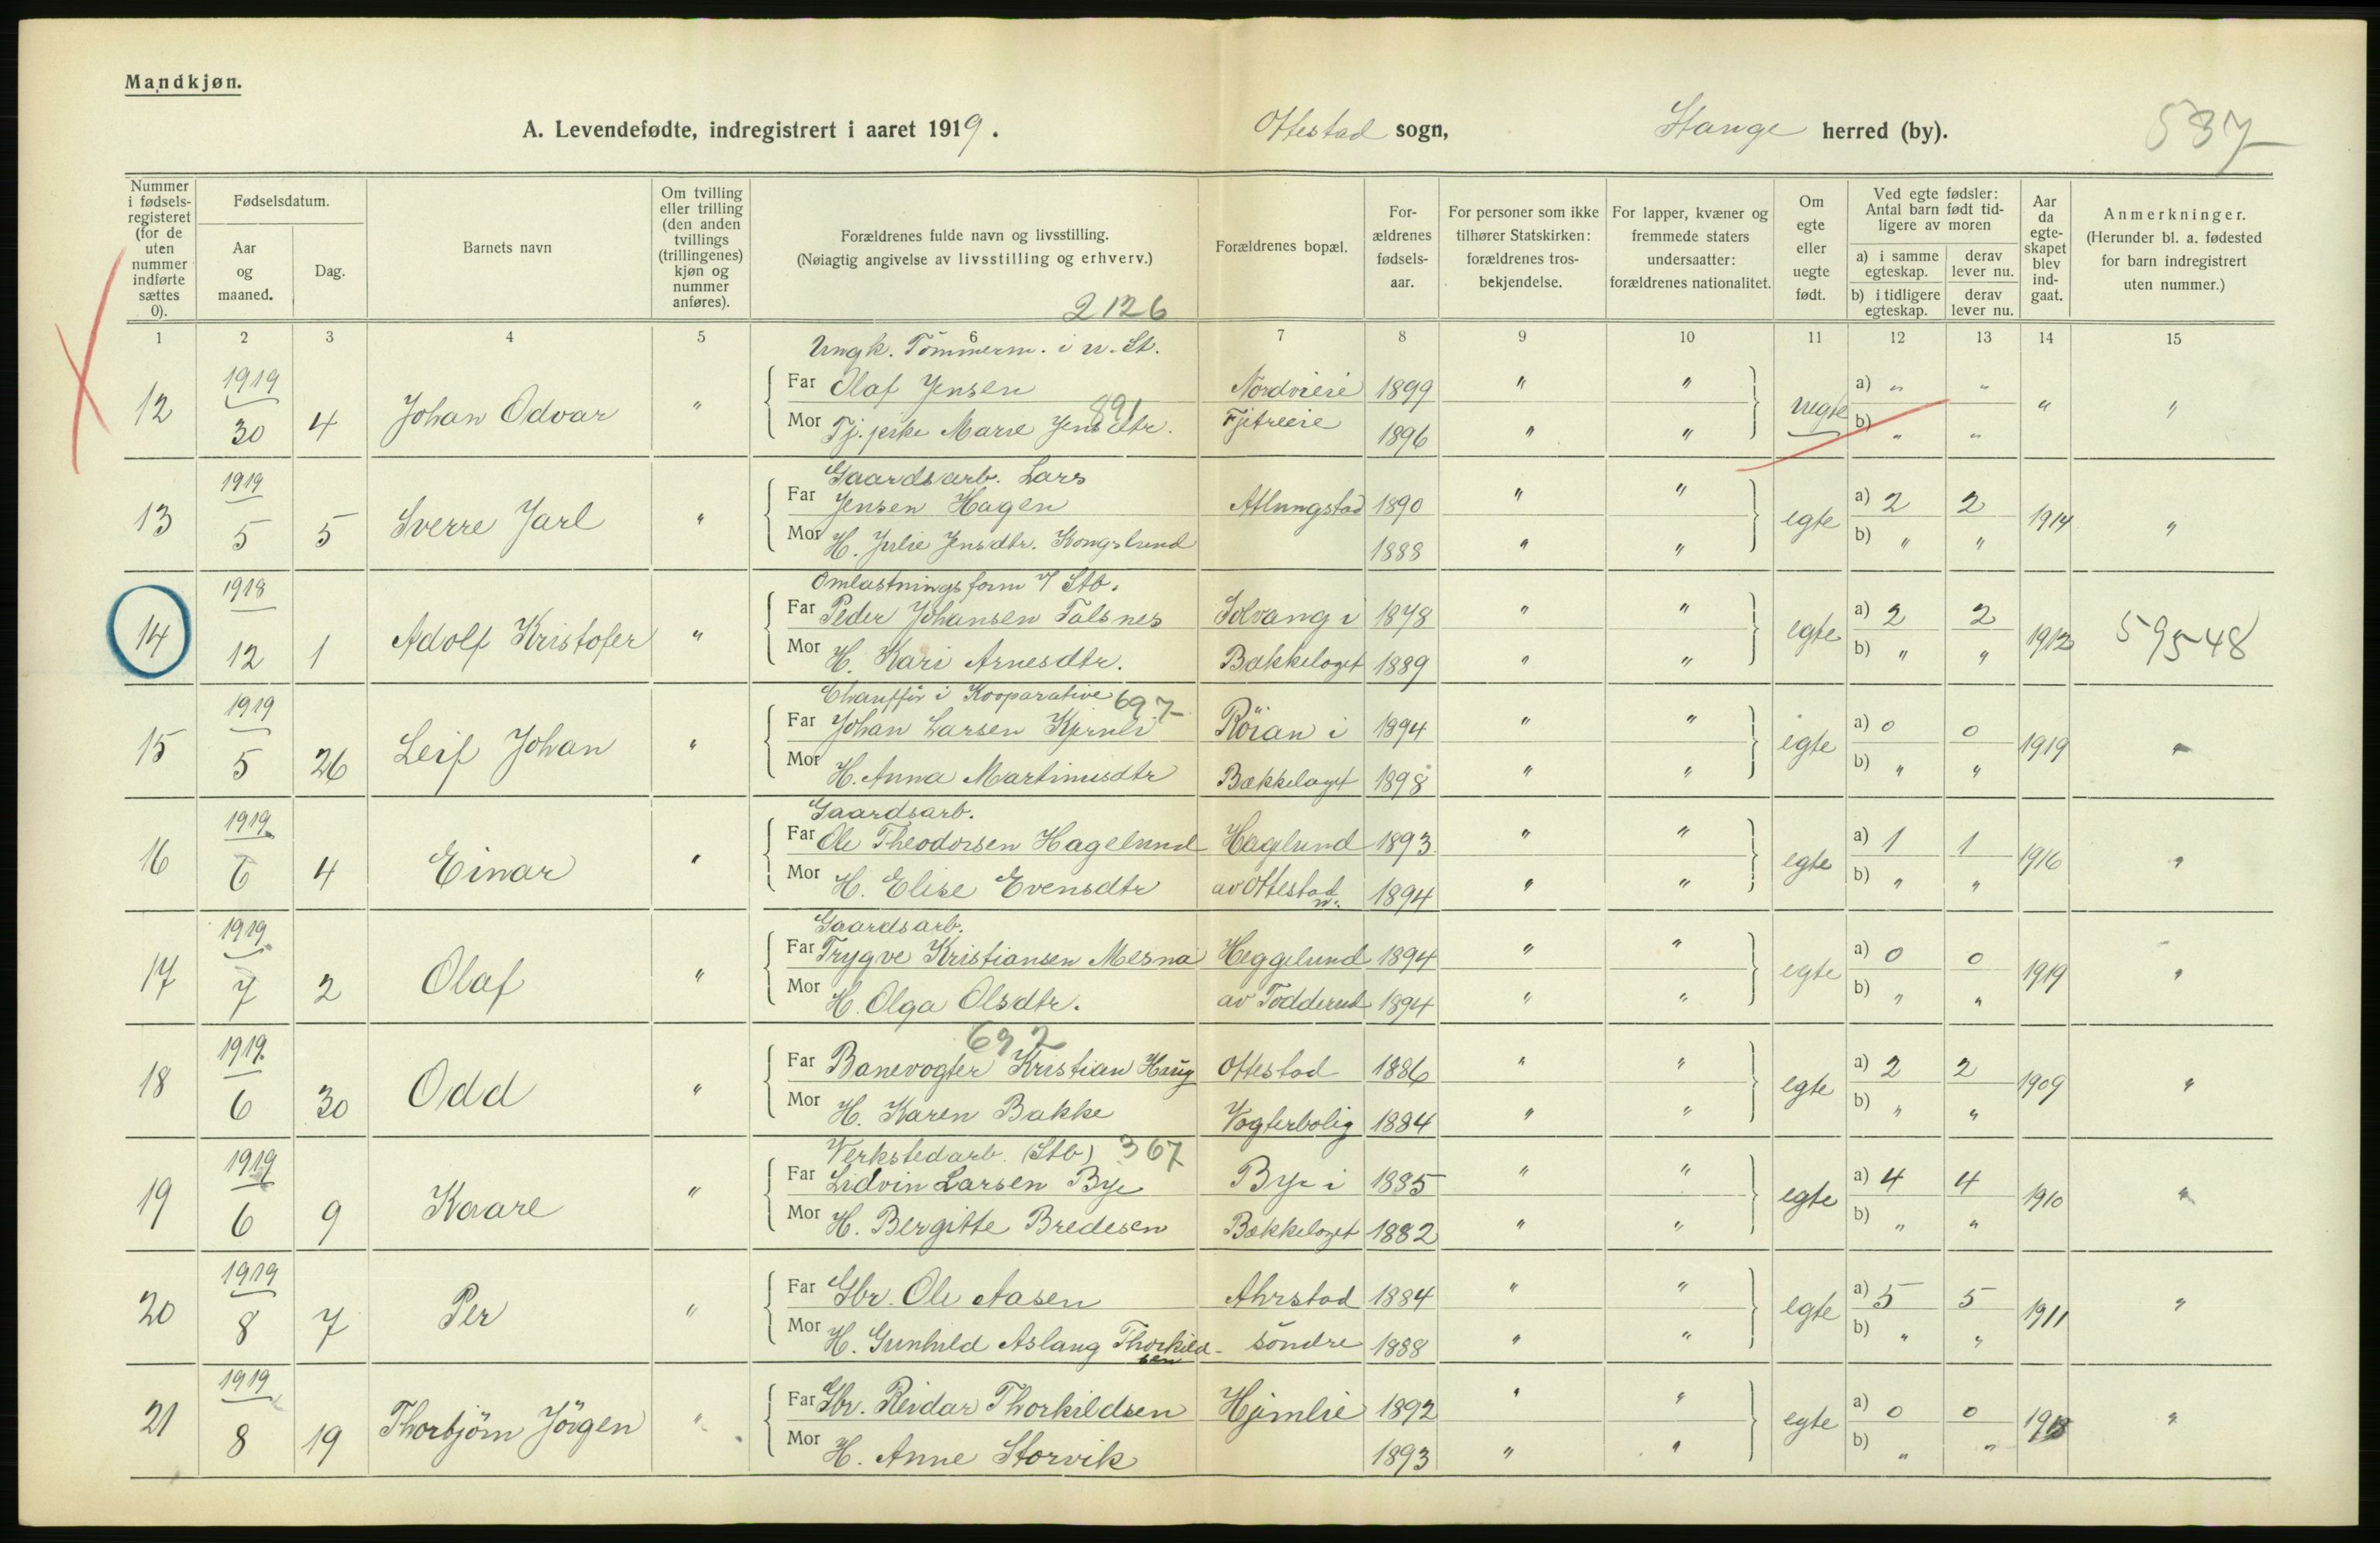 Mandkjøn.
A. Levendefødte, indregistrert i aaret 1919. Ottestad sogn, Stange herred (by). 537
Nummer i fødsels-registeret (for de uten nummer indførte sættes 0).
Fødselsdatum.
Aar og maaned.
Dag.
Barnets navn
Om tvilling eller trilling (den anden tvillings (trillingenes) kjøn og nummer anføres).
Forældrenes fulde navn og livsstilling.
(Nøiagtig angivelse av livsstilling og erhverv.)
2126
Forældrenes bopæl.
For-ældrenes fødsels-aar.
For personer som ikke tilhører Statskirken: forældrenes tros-bekjendelse.
For lapper, kvæner og fremmede staters undersaatter: forældrenes nationalitet.
Om egte eller uegte født.
Ved egte fødsler: Antal barn født tid-ligere av moren
a) i samme egteskap.
derav lever nu.
b) i tidligere egteskap.
derav lever nu.
Aar da egte-skapet blev ind-gaat.
Anmerkninger.
(Herunder bl. a. fødested for barn indregistrert uten nummer.)
1 2 3 4 5 6 7 8 9 10 11 12 13 14 15
Ungk. Tömmerm. i n. St.
1919 Far Olaf Jensen Nordvieie 1899 " " a) " "
12 30 4 Johan Odvar " 891 uegte " "
Mor Tj. pike Marie Jensdtr. Fjetreeie 1896 " " b) " "
Gaardsarb. Lars
1919 Far Jensen Hagen Atlungstad 1890 " " a) 2 2
13 5 5 Sverre Jarl " egte 1914 "
Mor H. Julie Jensdtr. Kongslund 1888 " " b) " "
Omlastningsform v/ Stb.
1918 Far Peder Johansen Falsnes Solvang i 1878 " " a) 2 2
14 12 1 Adolf Kristofer " egte 1912 59548
Mor H. Kari Arnesdtr. Bækkelaget 1889 " " b) " "
Chauffør i Kooparative 697
1919 Far Johan Larsen Kjernli Röian i 1894 " " a) 0 0
15 5 26 Leif Johan " egte 1919 "
Mor H. Anna Martinusdtr Bækkelaget 1898 " " b) " "
Gaardsarb.
1919 Far Ole Theodorsen Hagelund Haglund 1893 " " a) 1 1
16 6 4 Einar " egte 1916 "
Mor H. Elise Evensdtr av Ottestad n. 1894 " " b) " "
Gaardsarb.
1919 Far Trygve Kristiansen Mesna Heggelund 1894 " " a) 0 0
17 7 2 Olaf " egte 1919 "
Mor H. Olga Olsdtr. av Todderud 1894 " " b) " "
692
1919 Far Banevogter Kristian Haug Ottestad 1886 " " a) 2 2
18 6 30 Odd " egte 1909 "
Mor H. Karen Bakke Vogterbolig 1884 " " b) " "
Verkstedarb. (Stb) 367
1919 Far Lidvin Larsen Bye Bye i 1885 " " a) 4 4
19 6 9 Kaare " egte 1910 "
Mor H. Bergitte Bredesen Bækkelaget 1882 " " b) " "
1919 Far Gbr. Ole Aasen Ahrstad 1884 " " a) 5 5
20 8 7 Per " egte 1911 "
Mor H. Gunhild Aslaug Thorkild-sen söndre 1888 " " b) " "
1919 Far Gbr. Reidar Thorkildsen Hjemlie 1892 " " a) 0 0
21 8 19 Thorbjörn Jörgen " egte 1918 "
Mor H. Anne Storvik 1893 " " b) " "